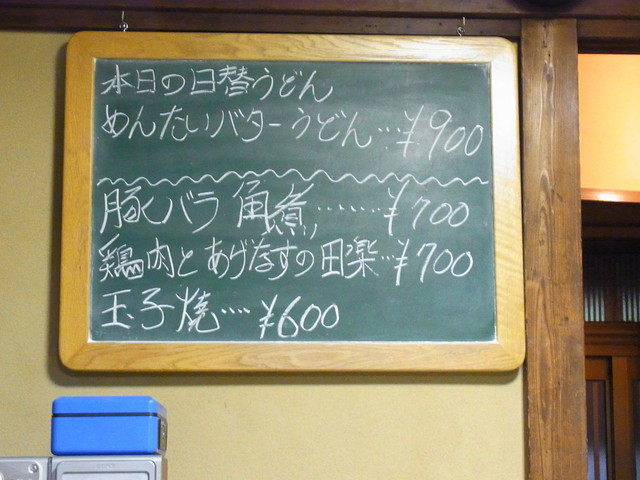 本日の日替うどん
めんたいバターうどん…¥900
豚バラ角煮………¥700
鶏肉とあげなすの田楽…¥700
玉子焼…. ¥600